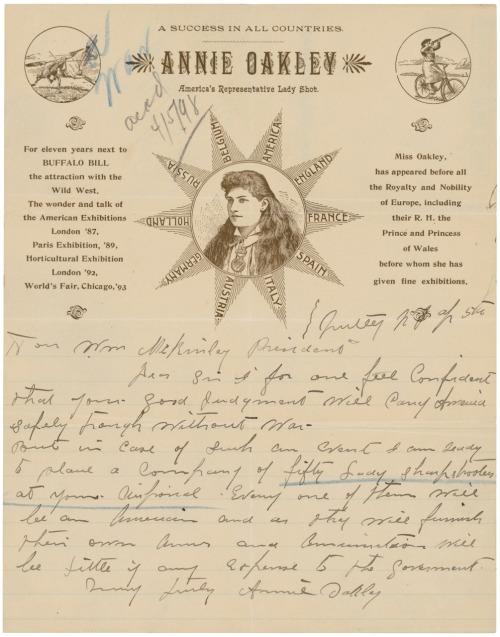 A SUCCESS IN ALL COUNTRIES.
ANNIE OAKLEY
America's Representative Lady Shot.
War
ackd
4/5/98
For eleven years next to
BUFFALO BILL
the attraction with the
Wild West.
The wonder and talk of
the American Exhibitions
London '87,
Paris Exhibition, '89,
Horticultural Exhibition
London '92,
World's Fair, Chicago, '93
BELGIUM
AMERICA
ENGLAND
FRANCE
SPAIN
ITALY
AUSTRIA
GERMANY
HOLLAND
RUSSIA
Miss Oakley,
has appeared before all
the Royalty and Nobility
of Europe, including
their R. H. the
Prince and Princess
of Wales
before whom she has
given fine exhibitions.
Nutley N J Ap 5th
Hon Wm McKinley President
Dear Sir I for one feel Confident
that your good judgment will carry America
safely through without War-
But in case of such an Event I am ready
to place a Company of fifty lady sharpshooters
at your disposal. Every one of them will
be an American and as they will furnish
their own Arms and Ammunition will
be little if any expense to the government.
Very truly Annie Oakley